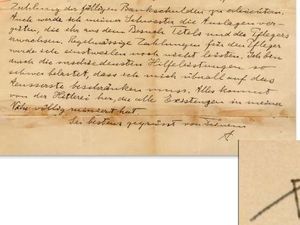 Zahlung der fälligen Bankschulden zu erleichtern.
Auch werde ich meiner Schwester die Auslagen ver-
güten, die ihr aus dem Besuch Tetels und des Pflegers
erwachsen. Regelmässige Zahlungen für den Pfleger
werde ich einstweilen noch nicht leisten. Ich bin
auch die bescheidensten Hilfeleistungen so
schwer belastet, dass ich mich überall auf das
Äusserste beschränken muss. Alles kommt
von der Hitlerei her, die alle Existenzen in meiner
Nähe völlig ruiniert hat.
Sei bestens gegrüsst von Deinem
A.